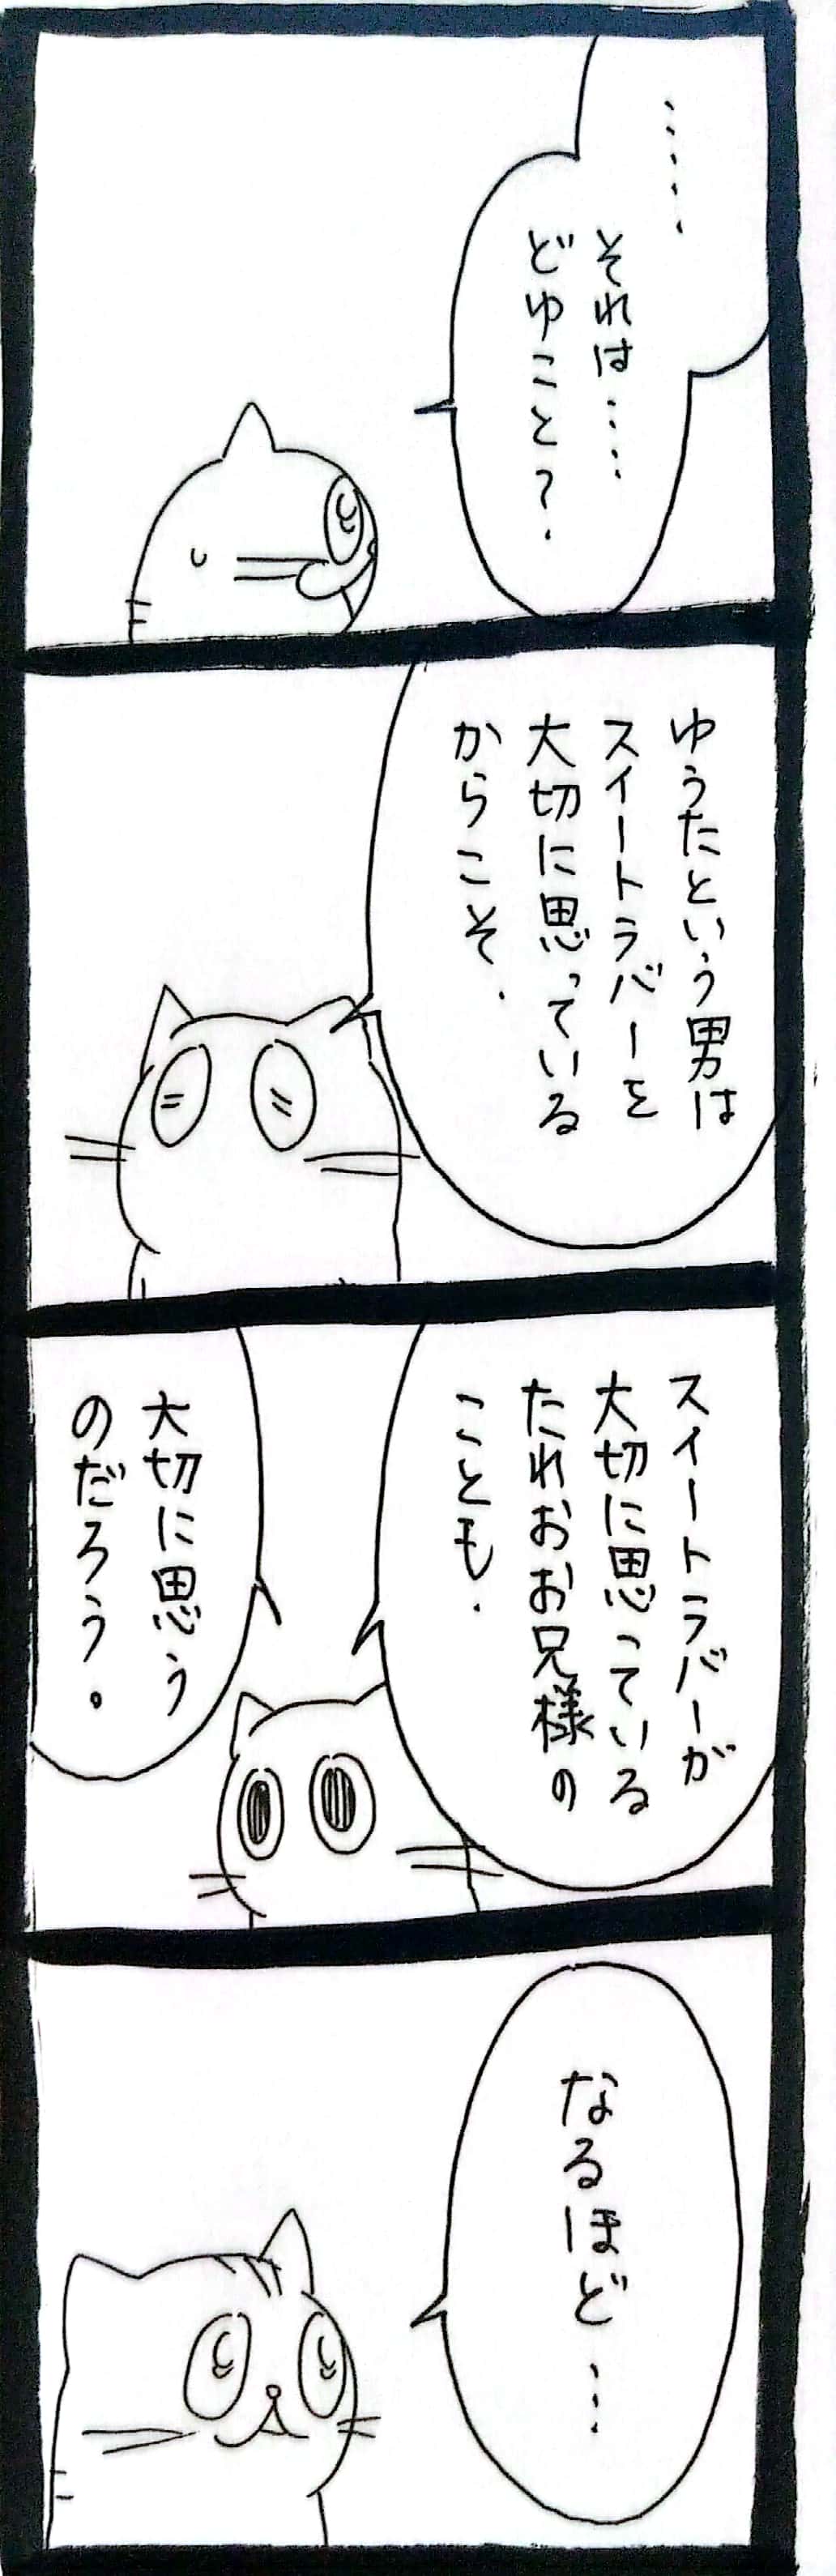 ……
それは……
どゆこと？
ゆうたという男は
スイートラバーを
大切に思っている
からこそ、
スイートラバーが
大切に思っている
たれおお兄様の
ことも、
大切に思う
のだろう。
なるほど…